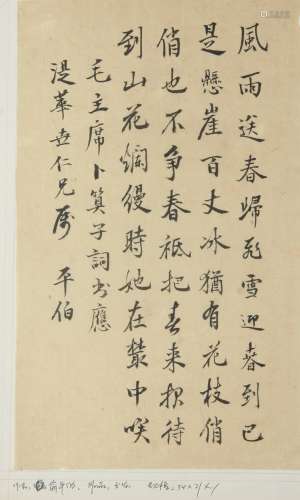 風雨送春歸飛雪迎春到已
是懸崖百丈冰猶有花枝俏
俏也不争春祇把春来報待
到山花爛縵時她在叢中咲
毛主席卜算子詞书應
湜華世仁兄属 平伯
俞平伯